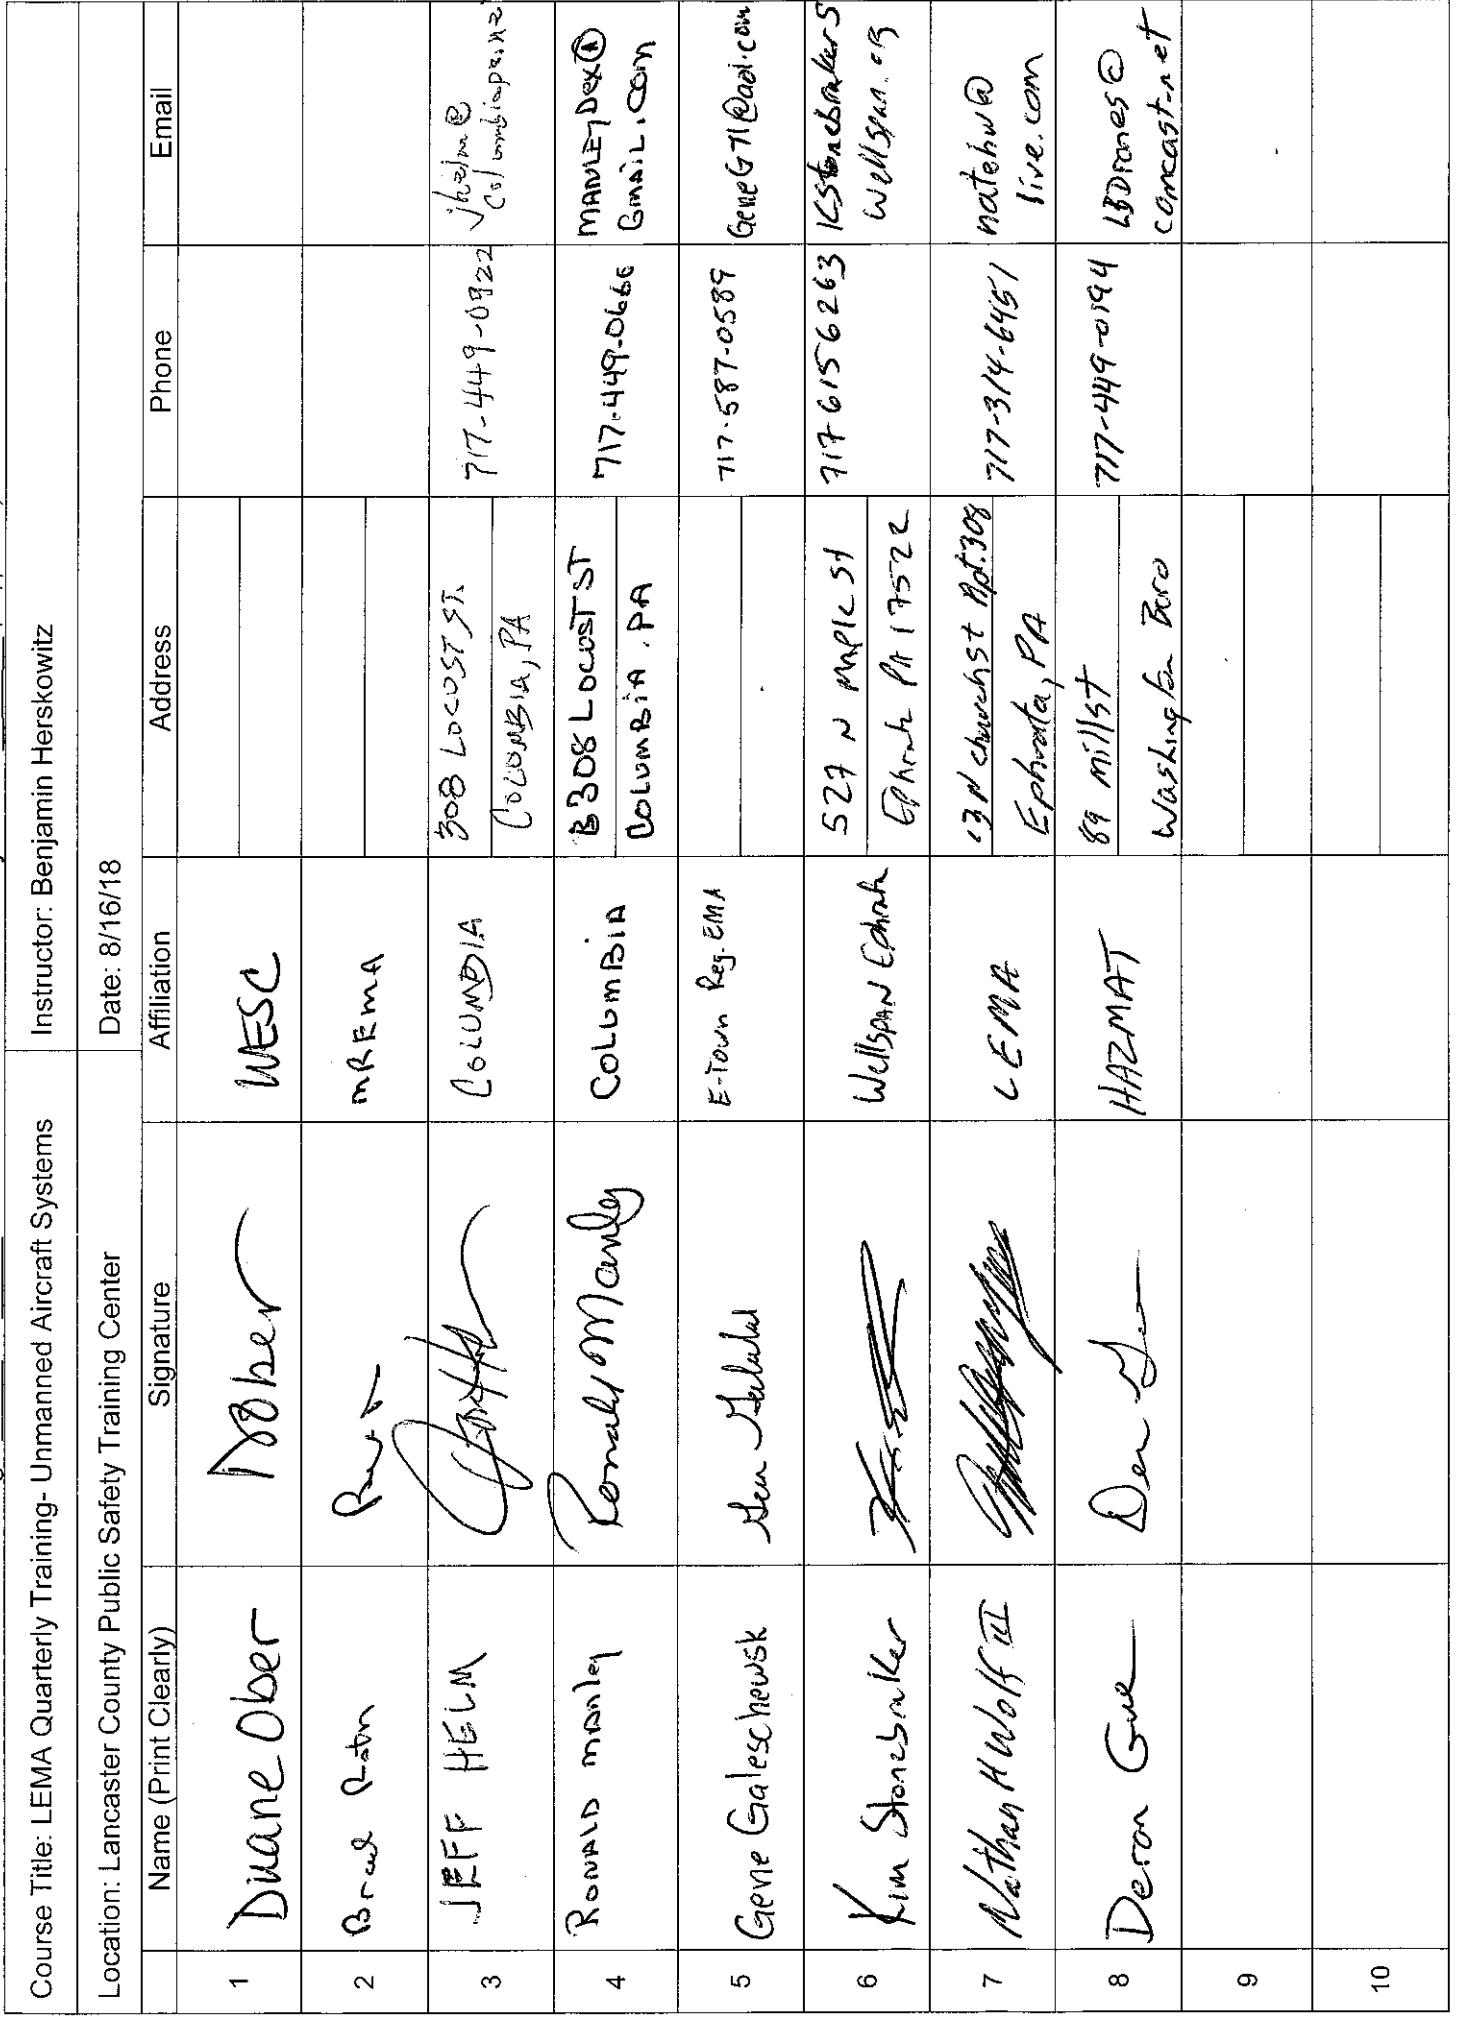 Course Title: LEMA Quarterly Training- Unmanned Aircraft Systems Instructor: Benjamin Herskowitz
Location: Lancaster County Public Safety Training Center Date: 8/16/18
Name (Print Clearly) Signature Affiliation Address Phone Email
1 Duane Ober DOber WESC
2 Brad mREmA
3 JEFF HELM COLUMBIA 308 LOCUST ST. 717-449-0922 jhelm@
COLUMBIA, PA
4 RONALD manley Ronald Manley COLUMBIA B308 LOCUST ST 717-449-0666 MANLEYDex@
COLUMBIA, PA GMAIL.COM
5 Gene Galeschewsk E-Town Reg. EMA 717-587-0589 GeneG71@aol.com
6 Kim Stonebraker WellSPAN Ephrata 527 N Maple St 717 615 6263 KStonebraker5
Ephrata PA 17522 Wellspan.org
7 Nathan H Wolf III LEMA 13 N church st Apt. 308 717-314-6451 natehw@
Ephrata, PA live.com
8 Deron Gue HAZMAT 89 mill st 717-449-0194 LBDrones@
Washington Boro comcast.net
9
10